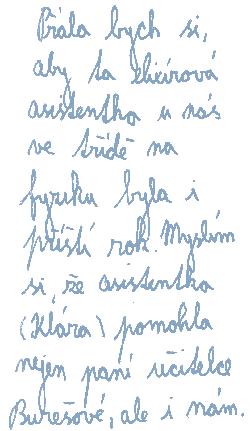 Přála bych si,
aby ta elixírová
asistentka u nás
ve třídě na
fyziku byla i
příští rok. Myslím
si, že asistentka
(Klára) pomohla
nejen paní učitelce
Burešové, ale i nám.